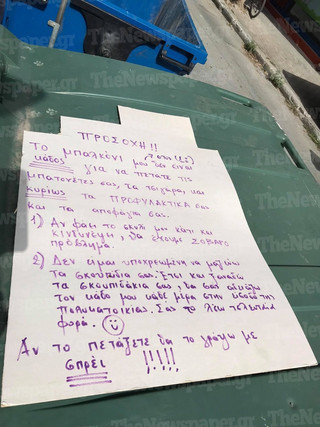 TheNewspaper.gr
ΠΡΟΣΟΧΗ!!
Το μπαλκόνι μου δεν είναι
κάδος για να πετάτε τις
μπατονέτες σας, τα τσιγάρα, και
κυρίως τα ΠΡΟΦΥΛΑΚΤΙΚΑ σας
και τα αποφάγια σας.
1) Αν φάει το σκυλί μου κάτι και
κινδυνέψει, θα έχουμε ΣΟΒΑΡΟ
πρόβλημα.
2) Δεν είμαι υποχρεωμένη να μαζεύω
τα σκουπίδια σας. Έτσι και
τα σκουπιδάκια σας, θα σας
τον κάδο μου κάθε μέρα στην είσοδο της
πολυκατοικίας. Σας το λέω τελευταία
φορά. ☺
Αν το πετάξετε θα το γράψω με
σπρέι !!!!!